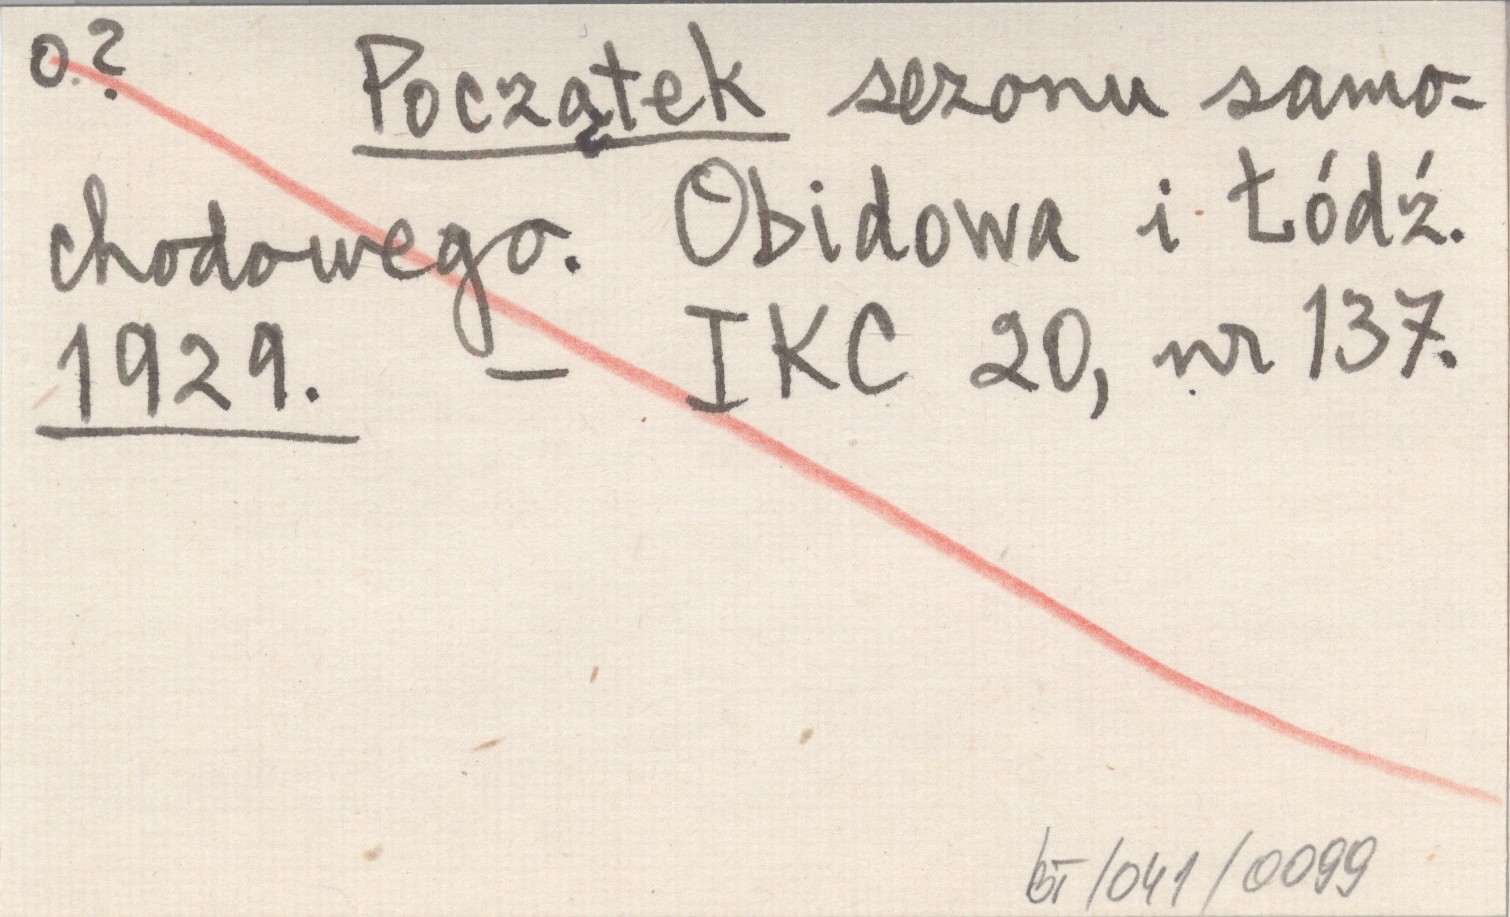 o.? Początek sezonu samo-
chodowego. Obidowa i Łódź.
1929. — IKC 20, nr 137.
bt/041/0099